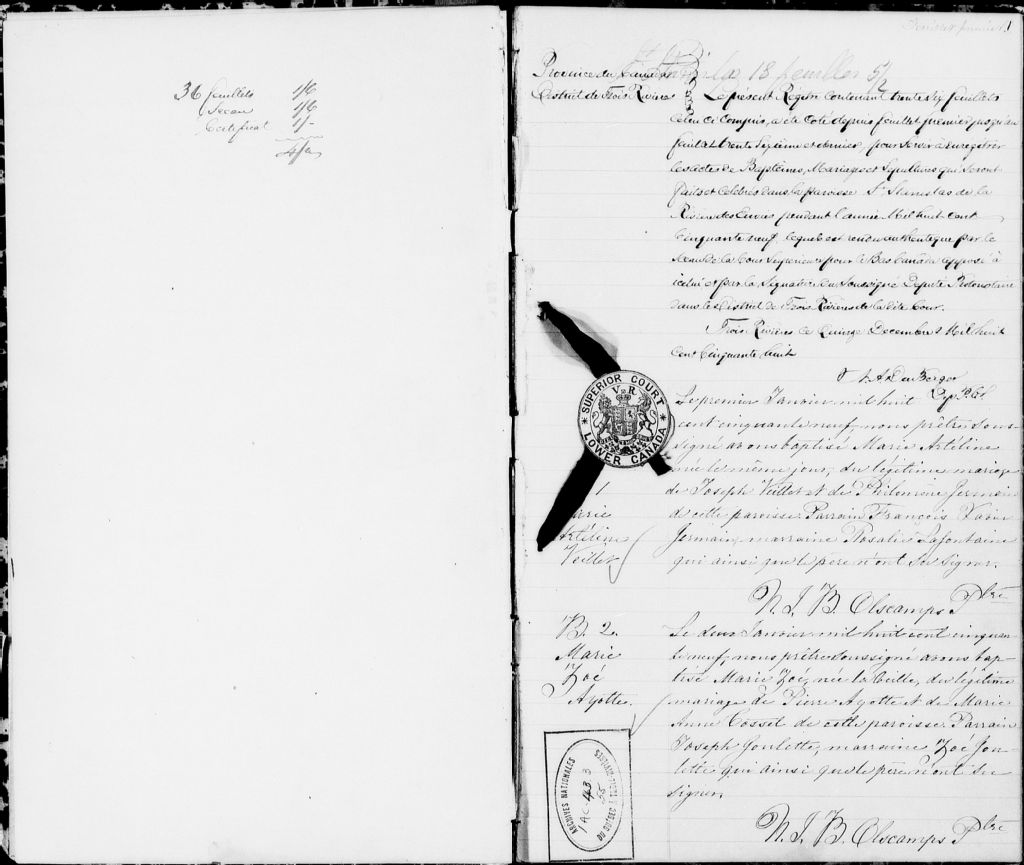 36 feuillets 1/6
Sceau 1/6
Certificat 1/-
4/-
Feuillet premier 1
Province du Canada
District de Trois Rivières
18 feuilles
Le présent Registre contenant trente six feuillets
celui ci compris, a été coté depuis feuillet premier jusqu'au
feuillet trente sixième et dernier, pour servir à enregistrer
les actes de Baptêmes, Mariages et Sépultures qui seront
faits et célébrés dans la paroisse St Stanislas de la
Rivière des Envies pendant l'année Mil huit cent
cinquante neuf, lequel est rendu authentique par le
sceau de la Cour Supérieure pour le Bas Canada apposé à
icelui et par la Signature du Soussigné Député Protonotaire
dans le District de Trois Rivières de la dite Cour.
Trois Rivières le Quinze Decembre Mil huit
Cent Cinquante huit
Dep. P.
SUPERIOR COURT
V R
LOWER CANADA
1
Marie
Artéline
Veillet
Le premier Janvier mil huit
cent cinquante neuf, nous prêtre sous-
signé avons baptisé Marie Artéline
née le même jour, du légitime mariage
de Joseph Veillet et de Philomène Germain
de cette paroisse. Parrain François Xavier
Germain, marraine Rosalie Lafontaine
qui ainsi que le père n'ont su signer.
N. J. B. Olscamps Ptre
B. 2.
Marie
Zoé
Ayotte.
Le deux Janvier mil huit cent cinquan-
te neuf, nous prêtre soussigné avons bap-
tisé Marie Zoé, née la veille, du légitime
mariage de Pierre Ayotte et de Marie
Anne Cosset de cette paroisse. Parrain
Joseph Goulette, marraine Zoé Gou-
lette, qui ainsi que le père n'ont su
signer.
N. J. B. Olscamps Ptre
ARCHIVES NATIONALES
1 AC 43 3
55
DU QUÉBEC À TROIS-RIVIÈRES